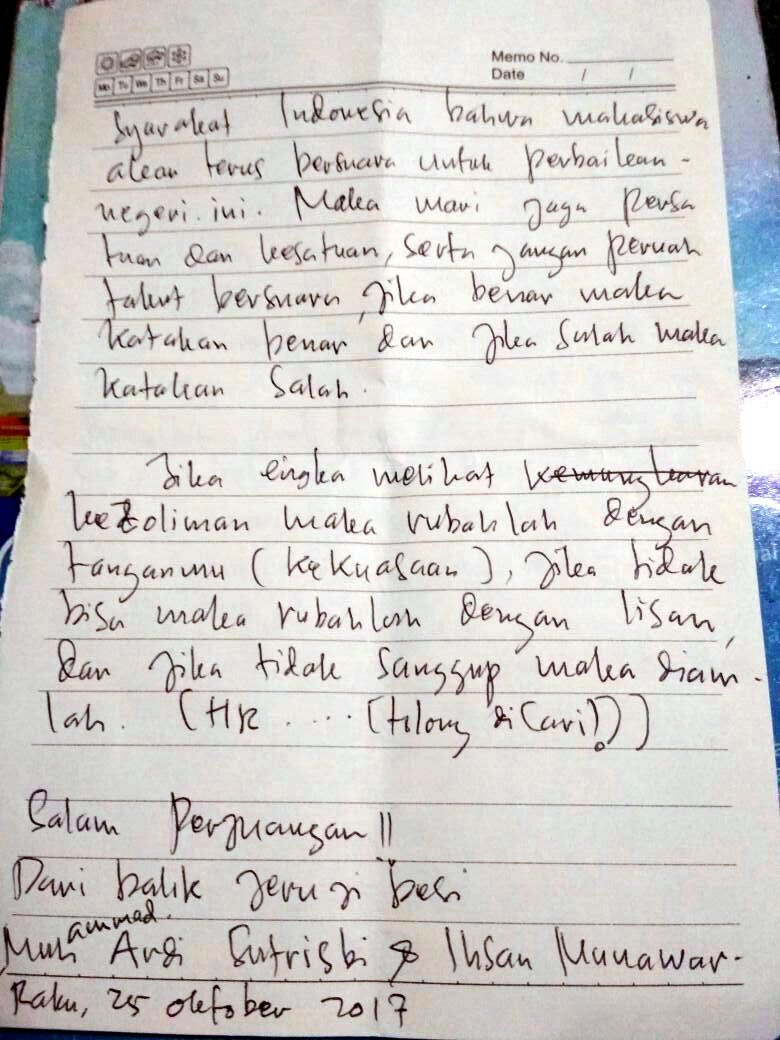 Memo No.
Date / /
Mo Tu We Th Fr Sa Su
syarakat Indonesia bahwa mahasiswa
akan terus bersuara untuk perbaikan-
negeri ini. Maka mari jaga persa
tuan dan kesatuan, serta jangan pernah
takut bersuara, jika benar maka
katakan benar dan jika salah maka
katakan salah.
Jika engka melihat kemungkaran
kezoliman maka rubahlah dengan
tanganmu (kekuasaan), jika tidak
bisa maka rubahlah dengan lisan,
dan jika tidak sanggup maka diam-
lah. (HR .... (tolong dicari!))
Salam Perjuangan!!
Dari balik jeruji besi
Muhammad Ardi Sutrisbi & Ihsan Munawar-
Rabu, 25 oktober 2017